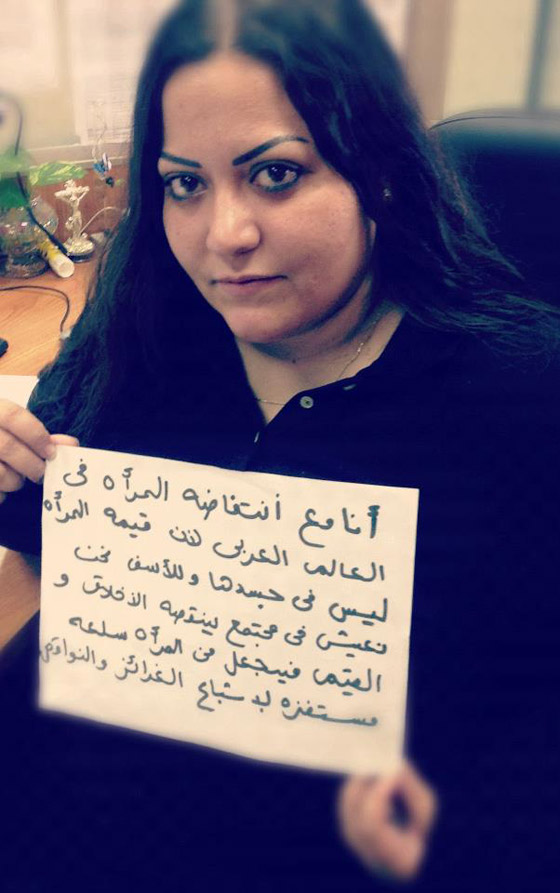 أنا مع أنتفاضه المرأه فى
العالم العربى لان قيمه المرأه
ليس فى جسدها وللأسف نحن
نعيش فى مجتمع ينقصه الأخلاق و
القيم فيجعل من المرأه سلعه
مستفزه لاشباع الغرائز والنواقص